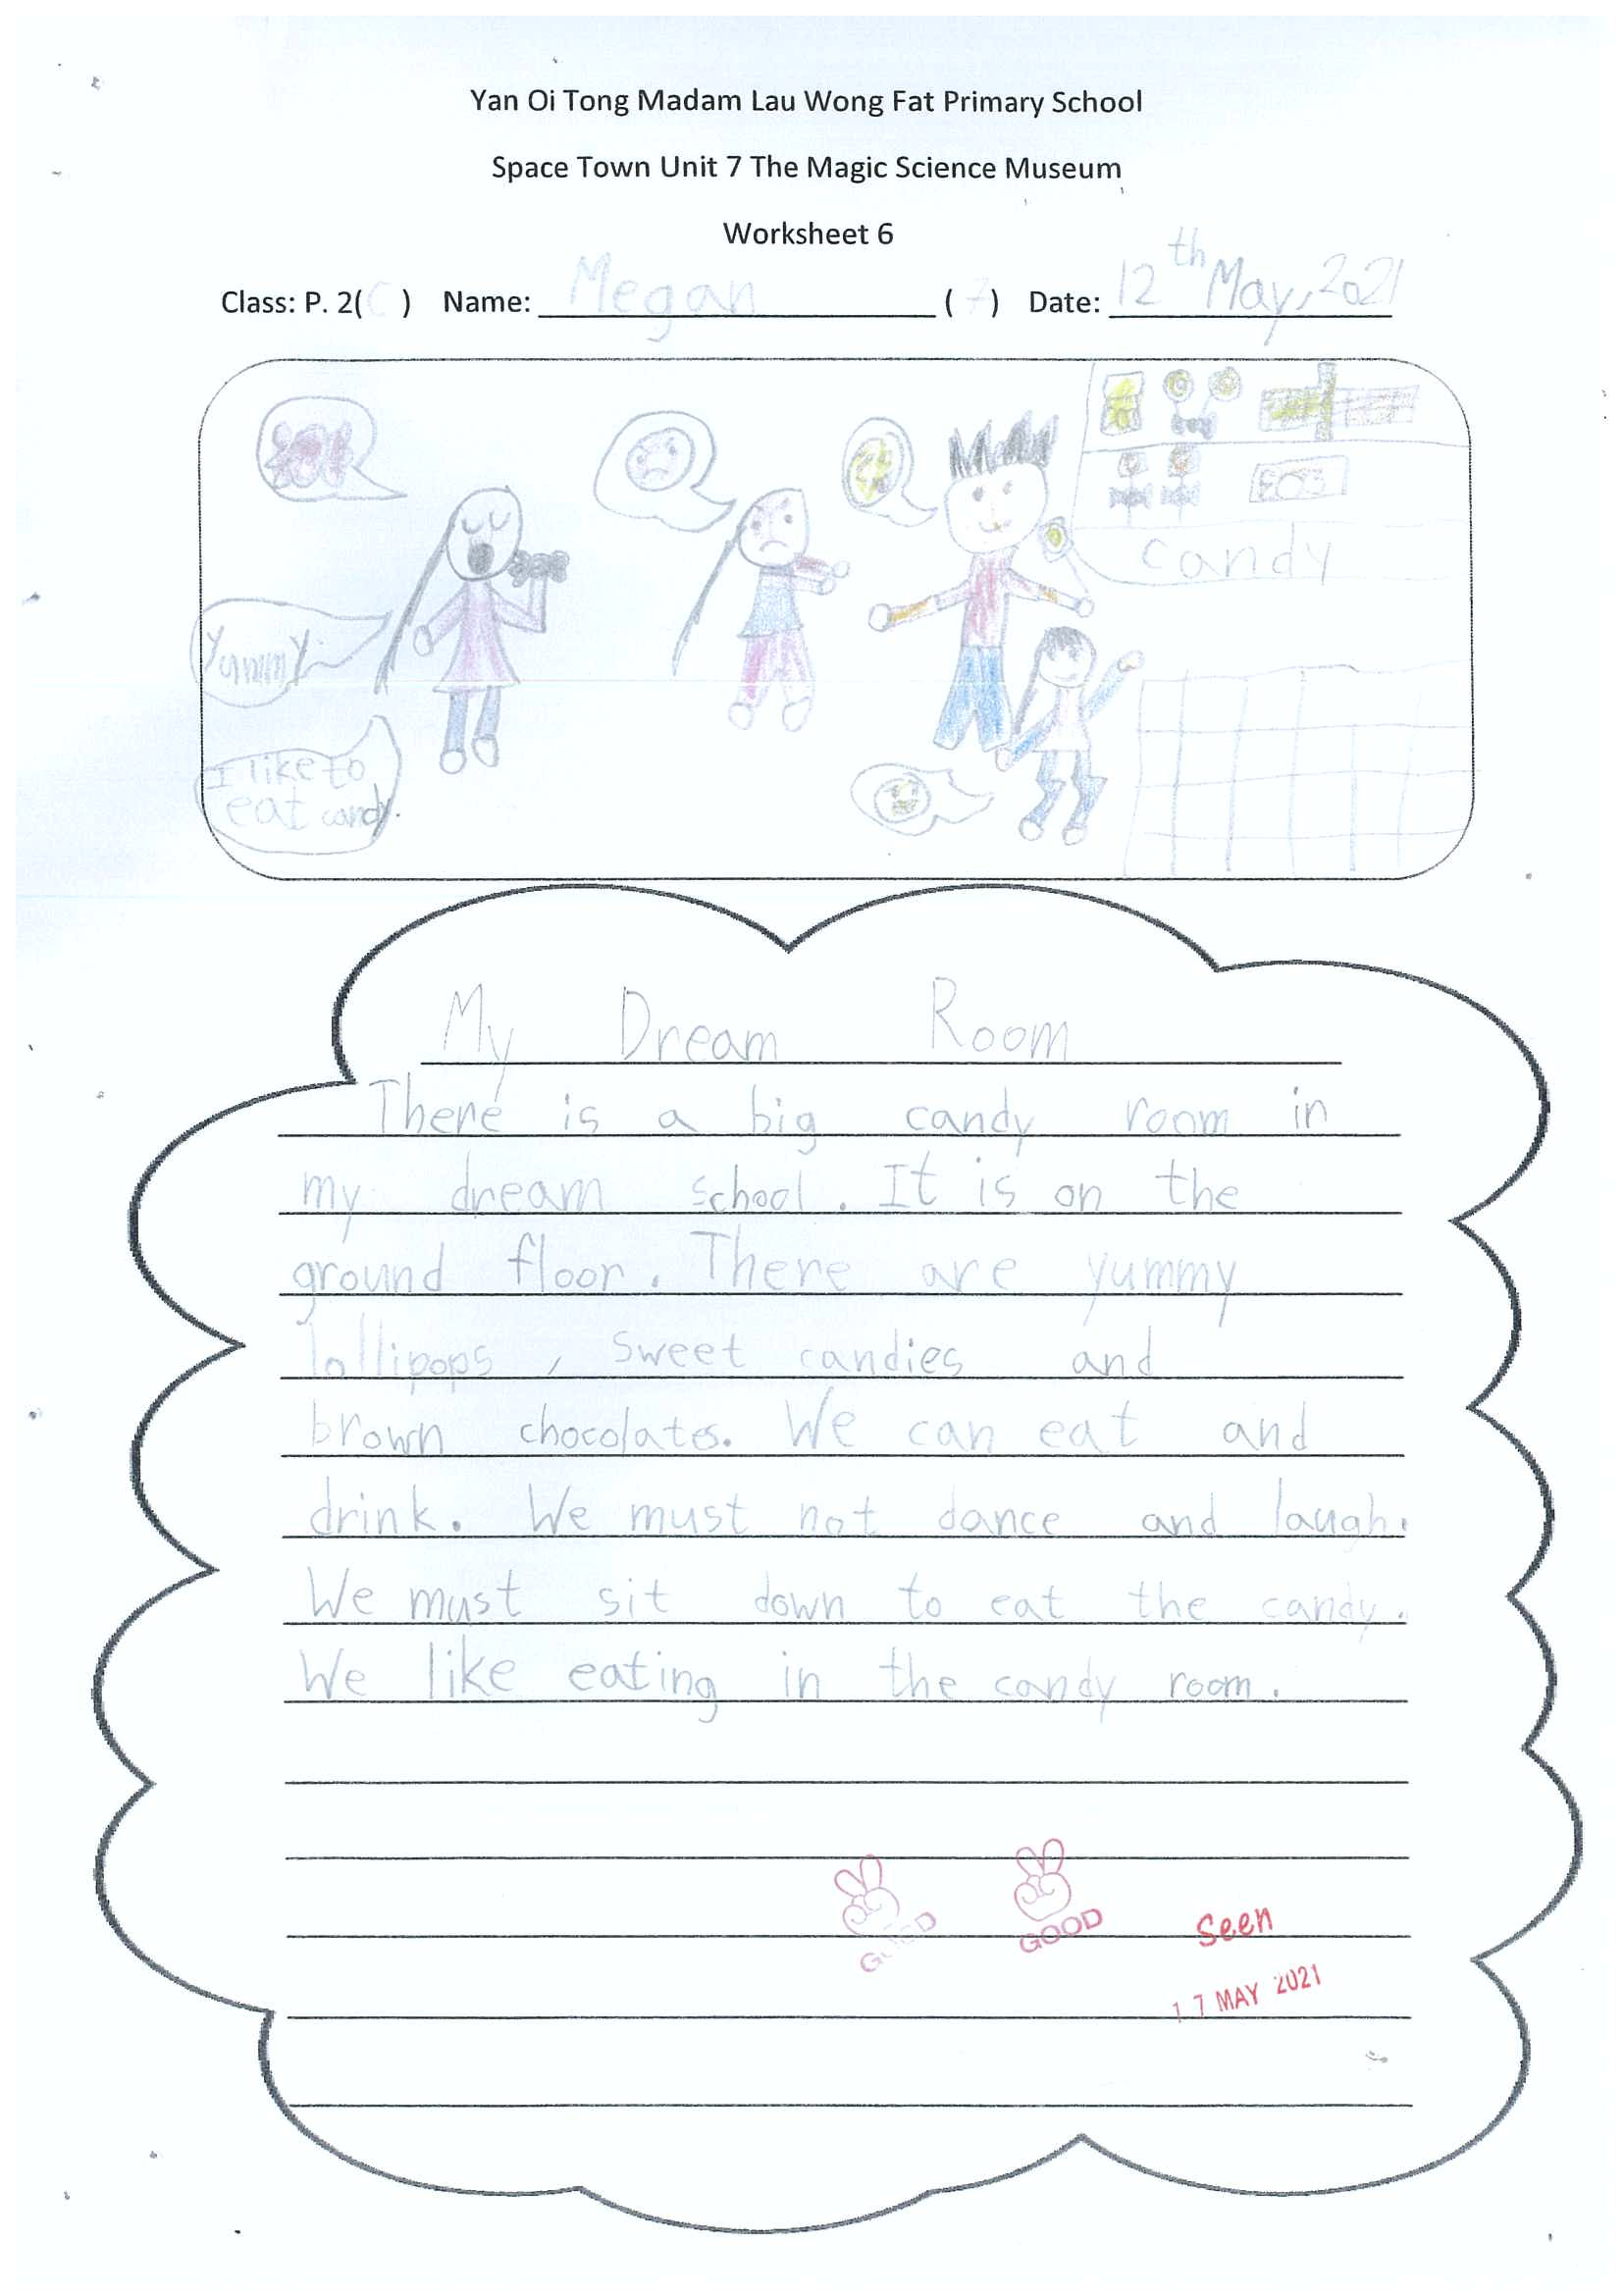 Yan Oi Tong Madam Lau Wong Fat Primary School
Space Town Unit 7 The Magic Science Museum
Worksheet 6
Class: P. 2(C) Name: Megan (7) Date: 12th May, 2021
candy
Yummy
I like to
eat candy.
My Dream Room
There is a big candy room in
my dream school. It is on the
ground floor. There are yummy
lollipops, sweet candies and
brown chocolates. We can eat and
drink. We must not dance and laugh.
We must sit down to eat the candy.
We like eating in the candy room.
GOOD
GOOD
Seen
17 MAY 2021